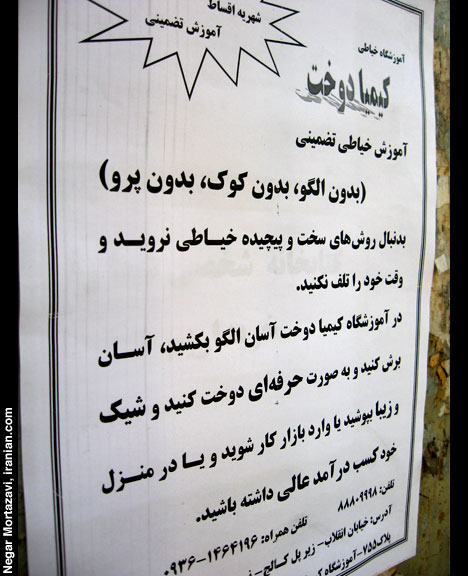 شهریه اقساط
آموزش تضمینی
آموزشگاه خیاطی
کیمیا دوخت
آموزش خیاطی تضمینی
(بدون الگو، بدون کوک، بدون پرو)
بدنبال روش‌های سخت و پیچیده خیاطی نروید و
وقت خود را تلف نکنید.
در آموزشگاه کیمیا دوخت آسان الگو بکشید، آسان
برش کنید و به صورت حرفه‌ای دوخت کنید و شیک
و زیبا بپوشید یا وارد بازار کار شوید و یا در منزل
خود کسب درآمد عالی داشته باشید.
تلفن: ۸۸۸۰۹۹۹۸ تلفن همراه: ۱۴۶۴۱۹۶-۰۹۳۶
آدرس: خیابان انقلاب- زیر پل کالج-
پلاک۷۵۵- آموزشگاه
Negar Mortazavi, iranian.com